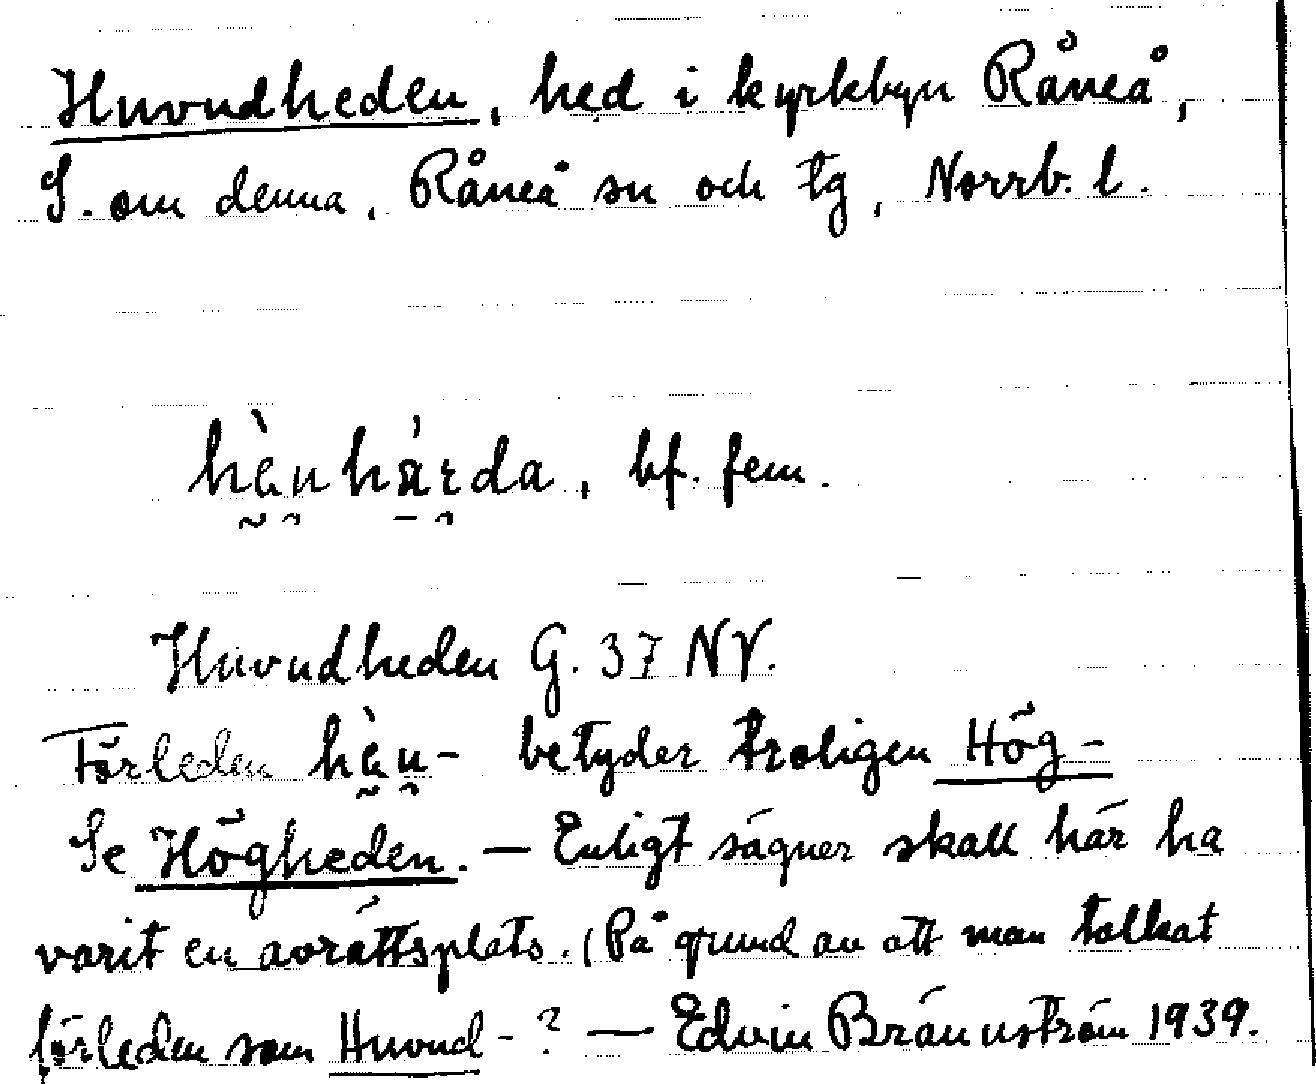 Huvudheden, hed i kyrkbyn Råneå,
S. om denna, Råneå sn och tg, Norrb. l.
hὰn hárda, bf. fem.
Huvudheden G. 37 NV.
Förleden hὰn- betyder troligen Hög-
Se Högheden. — Enligt sägner skall här ha
varit en avrättsplats. (På grund av att man tolkat
förleden som Huvud-? — Edvin Brännström 1939.